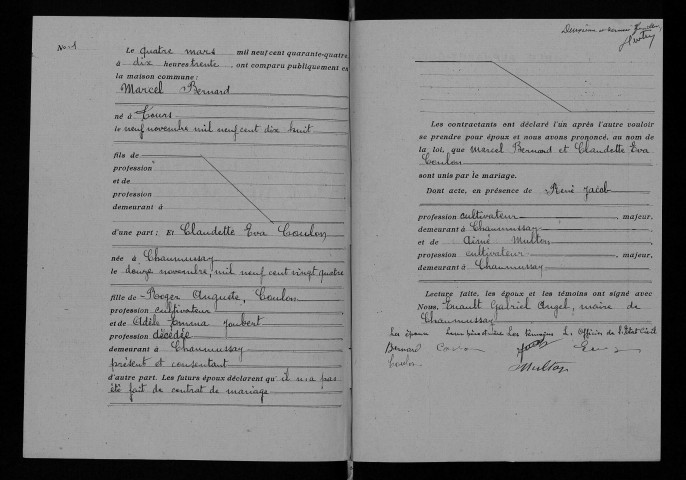 No 1
Le quatre mars mil neuf cent quarante-quatre
à dix heures trente, ont comparu publiquement en
la maison commune:
Marcel Bernard
né à Tours
le neuf novembre mil neuf cent dix huit
fils de
profession
et de
profession
demeurant à
d'une part: Et Claudette Eva Coulon
née à Chaumussay
le douze novembre mil neuf cent vingt quatre
fille de Roger Auguste, Coulon
profession cultivateur
et de Adèle Emma Joubert
profession décédée
demeurant à Chaumussay
présent et consentant
d'autre part. Les futurs époux déclarent qu'il n'a pas
été fait de contrat de mariage
Deuxième et dernier feuillet
Les contractants ont déclaré l'un après l'autre vouloir
se prendre pour époux et nous avons prononcé, au nom de
la loi, que Marcel Bernard et Claudette Eva
Coulon
sont unis par le mariage.
Dont acte, en présence de René Jacob
profession cultivateur, majeur.
demeurant à Chaumussay
et de Aimé Multon
profession cultivateur, majeur.
demeurant à Chaumussay
Lecture faite, les époux et les témoins ont signé avec
Nous, Gabriel Angel, maire de
Chaumussay
Les époux Les témoins L'Officier de l'Etat Civil
Bernard
Coulon
Multon